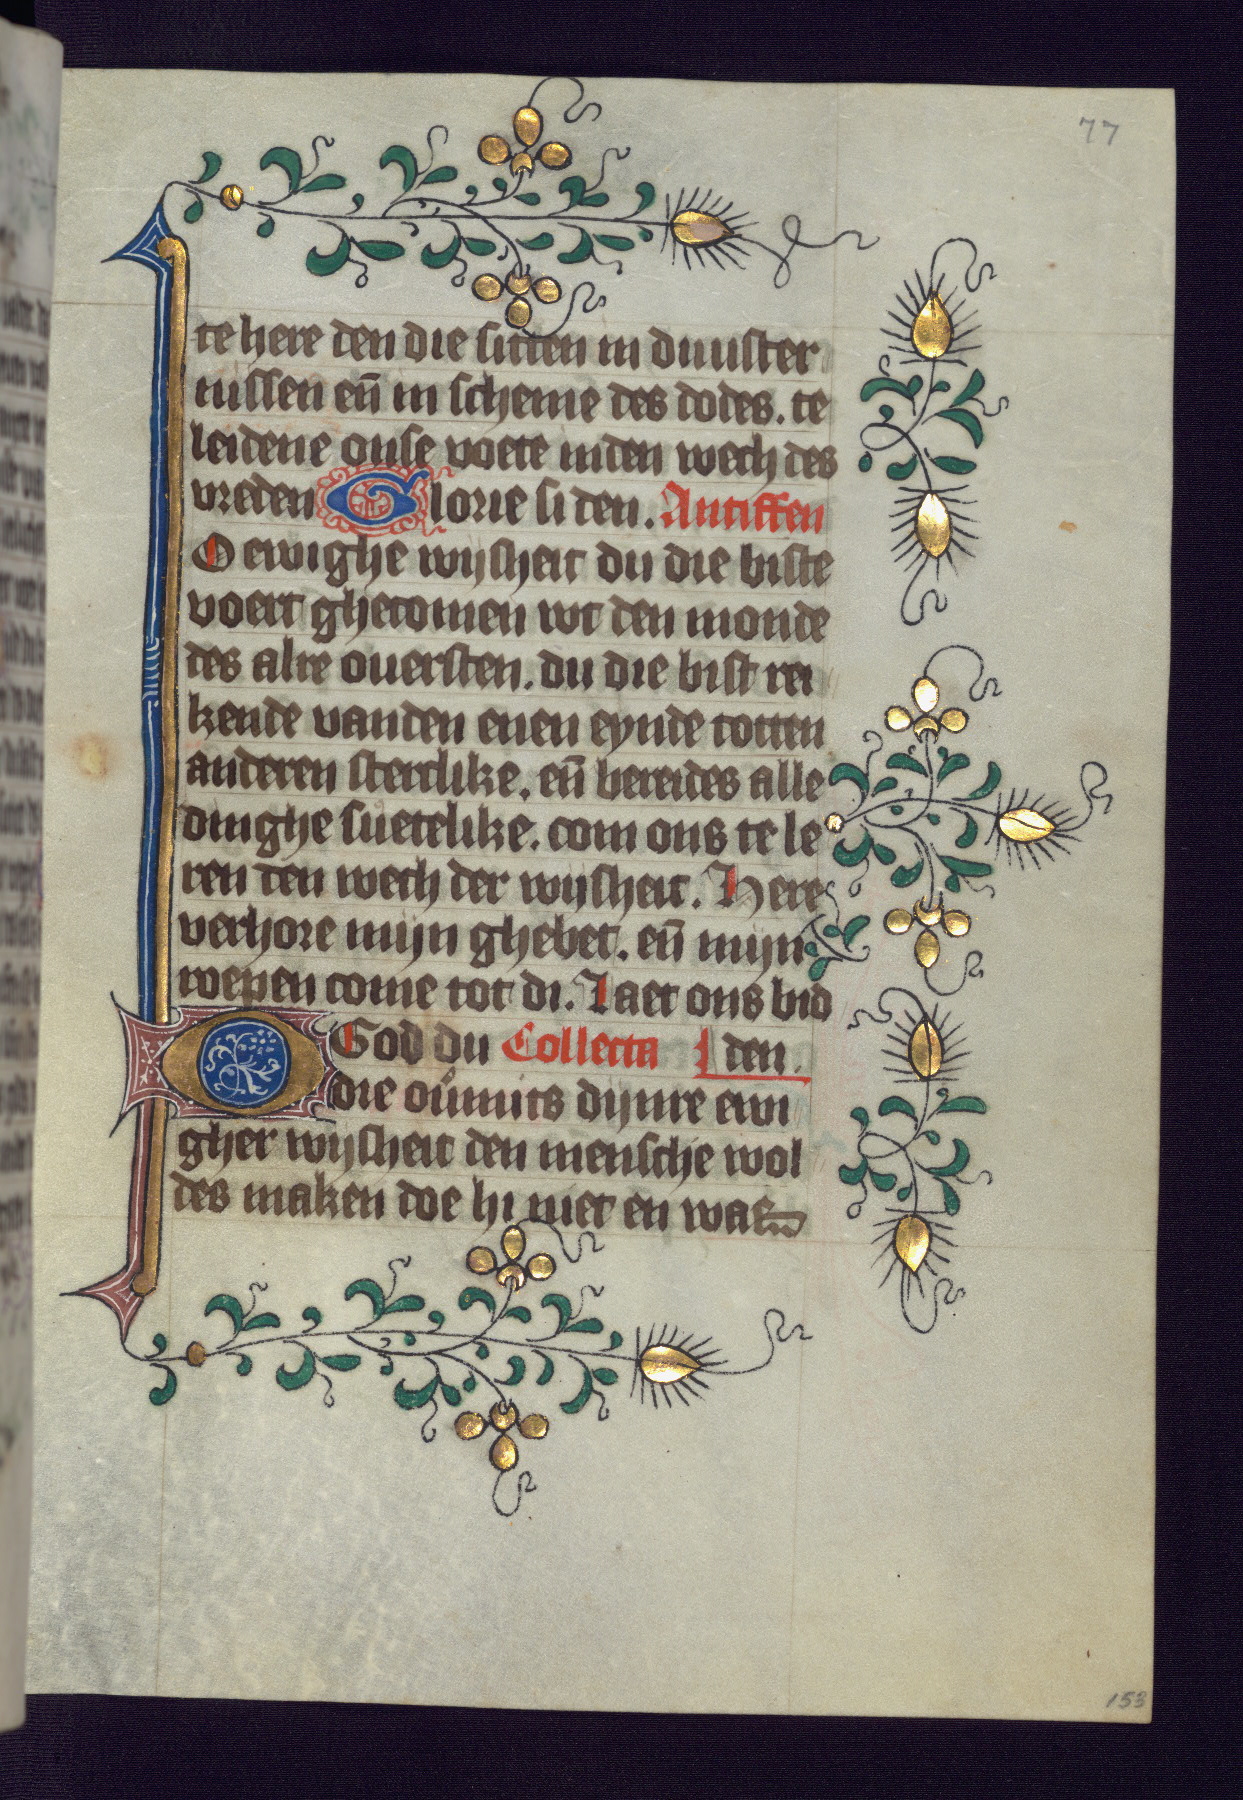 77
te here den die sitten in duuster
nissen eñ in scheme des dodes. te
leidene onse voete inden wech des
vreden Glorie si den. Antiffen
O ewighe wijsheit du die biste
voert ghecomen wt den monde
des alre ouersten. du die bist rei
kende vanden enen eynde totten
anderen sterclike. eñ bereides alle
dinghe suetelike. com ons te le
ren den wech der wijsheit. Here
verhore mijn ghebet. eñ mijn
roepen come tot di. Laet ons bid
O God du Collecta den.
die ouͥmits dijnre ewi
gher wijsheit den mensche wol
des maken doe hi niet en was
153